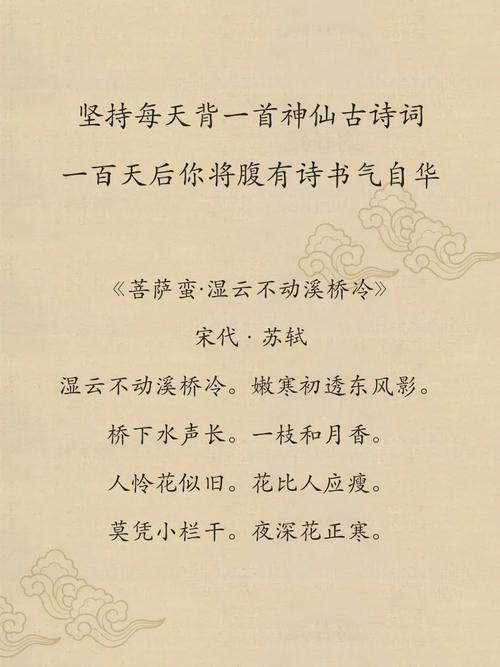 坚持每天背一首神仙古诗词
一百天后你将腹有诗书气自华
《菩萨蛮·湿云不动溪桥冷》
宋代·苏轼
湿云不动溪桥冷。嫩寒初透东风影。
桥下水声长。一枝和月香。
人怜花似旧。花比人应瘦。
莫凭小栏干。夜深花正寒。